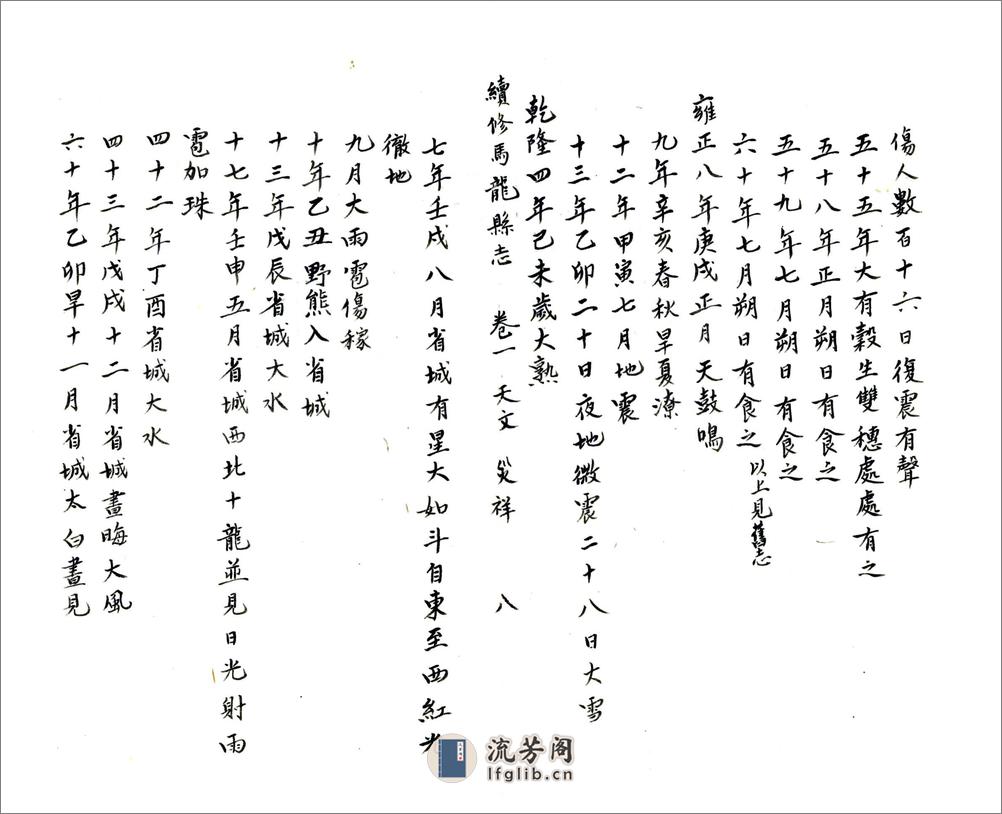 傷人數百十六日復震有聲
五十五年大有穀生雙穗處處有之
五十八年正月朔日有食之
五十九年七月朔日有食之
六十年七月朔日有食之以上見舊志
雍正八年庚戌正月天鼓鳴
九年辛亥春秋旱夏潦
十二年甲寅七月地震
十三年乙卯二十日夜地微震二十八日大雪
乾隆四年己未歲大熟
續修馬龍縣志 卷一 天文 災祥 八
七年壬戌八月省城有星大如斗自東至西紅光
徹地
九月大雨雹傷稼
十年乙丑野熊入省城
十三年戊辰省城大水
十七年壬申五月省城西北十龍並見日光射雨
雹如珠
四十二年丁酉省城大水
四十三年戊戌十二月省城晝晦大風
六十年乙卯旱十一月省城太白晝見
流芳阁
lfglib.cn